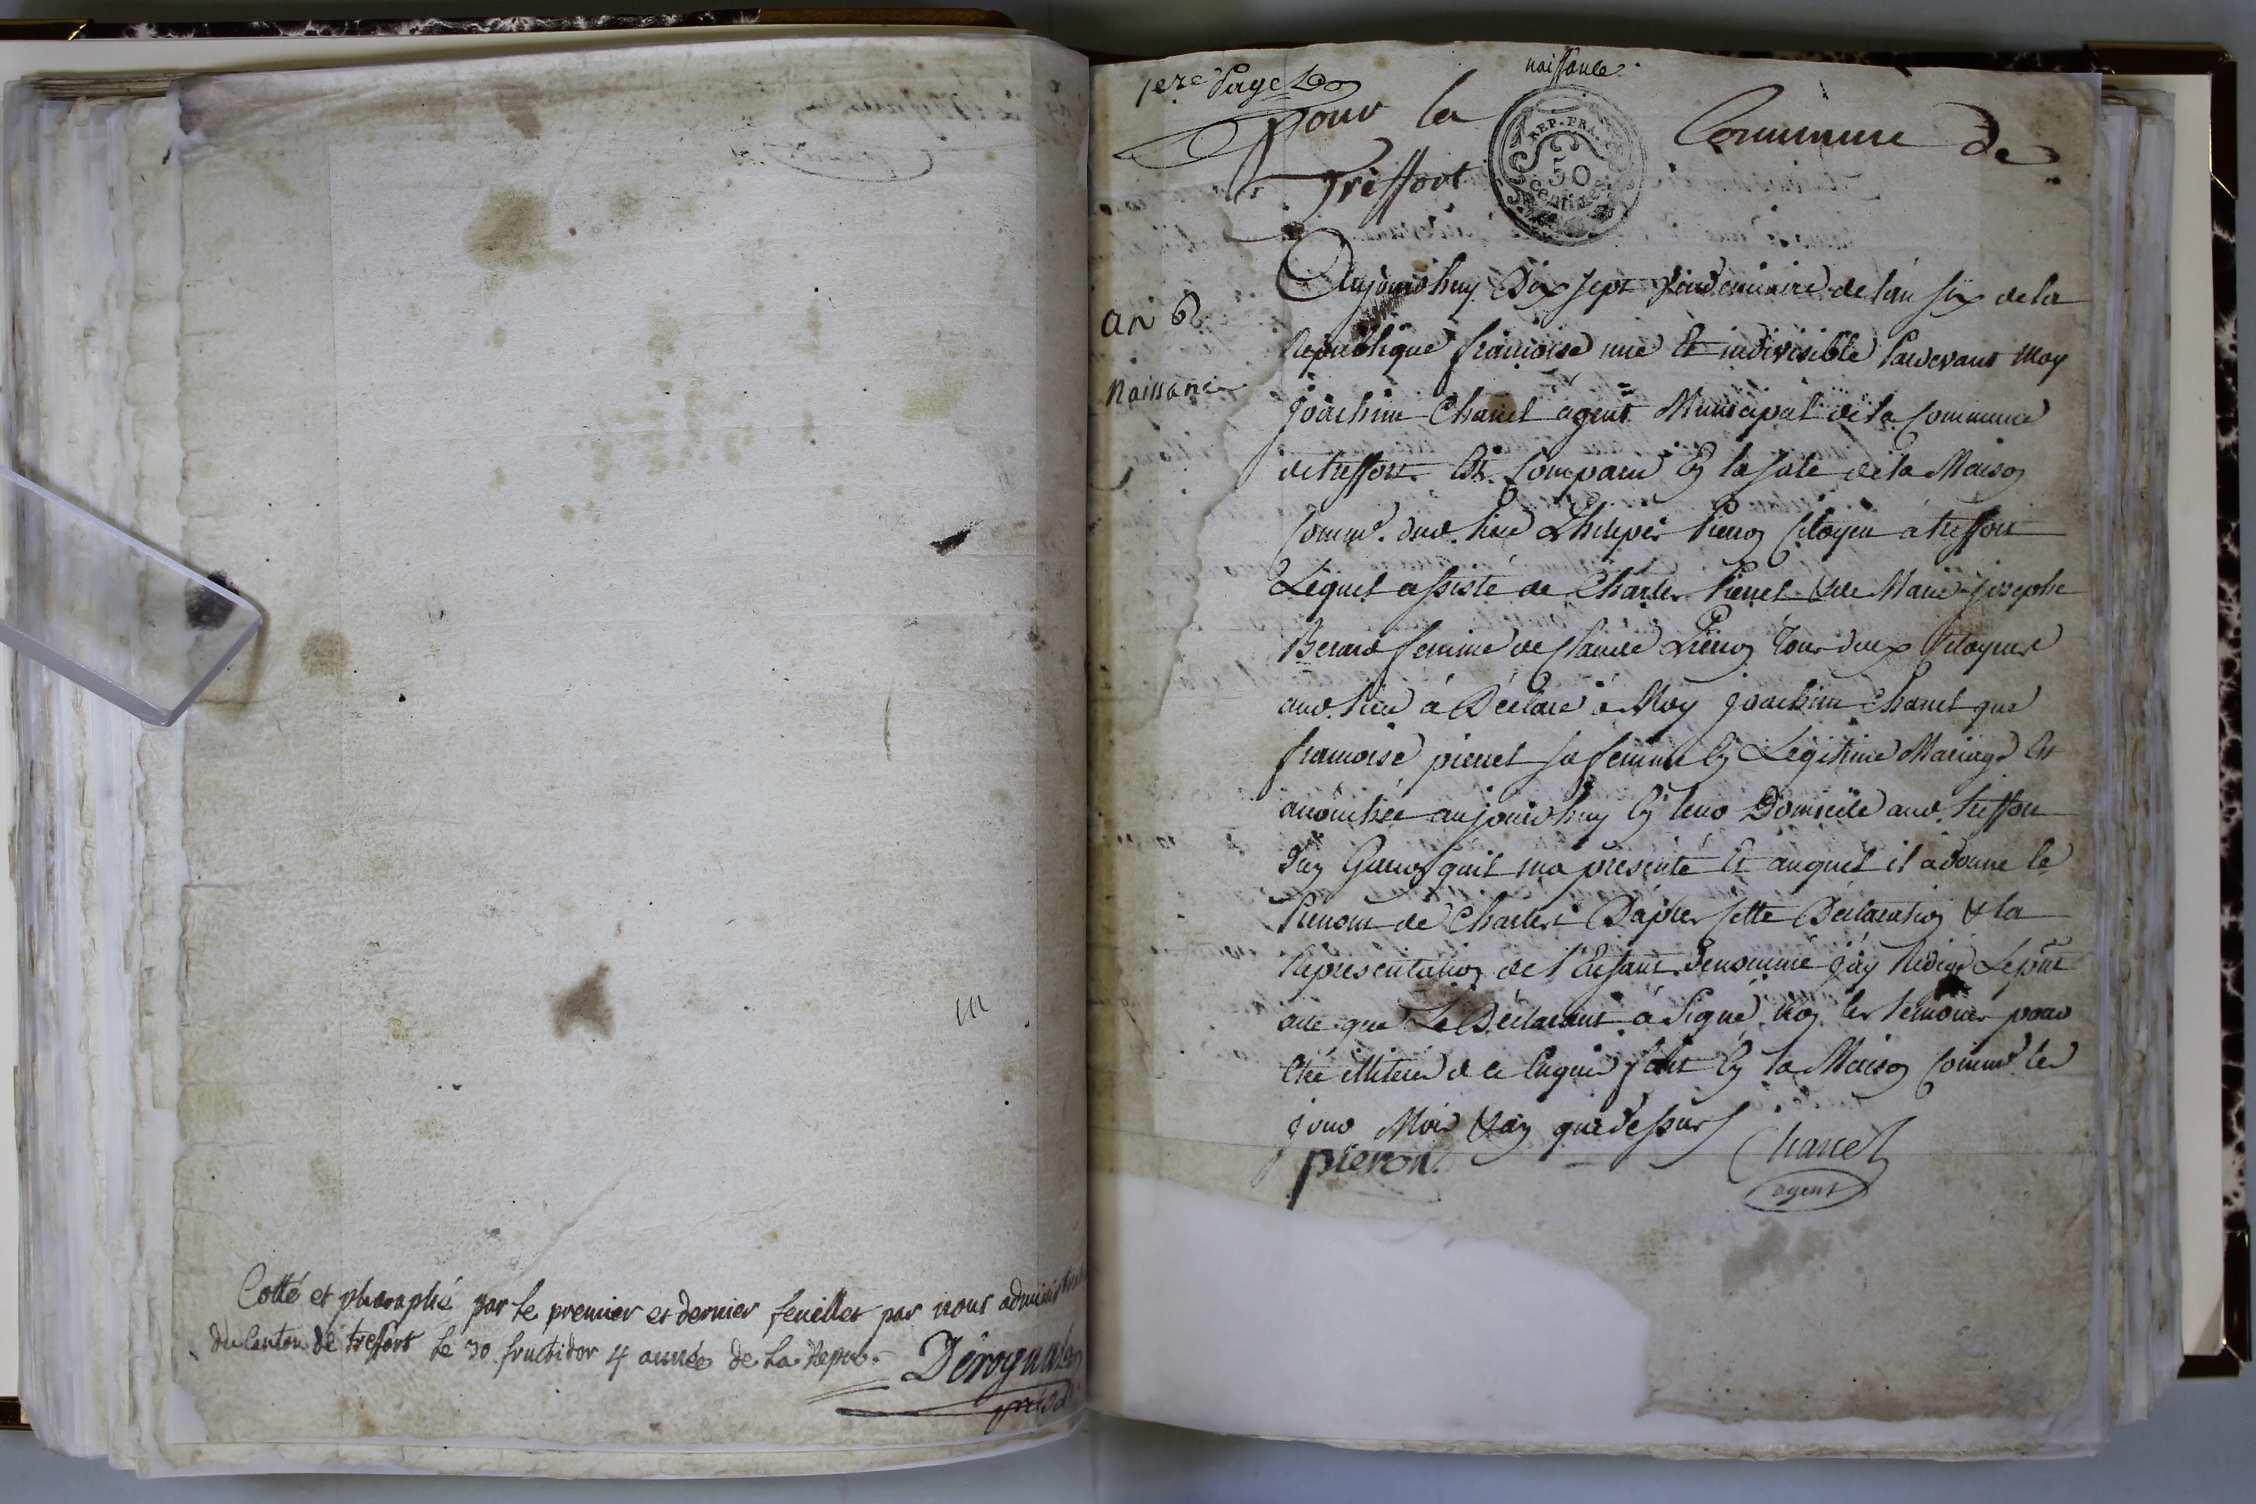 Cotté et pharaphé par le premier et dernier feuillet par nous
du Canton de treffort le 30 fructidor 4 année de la Repub.
1ere Page
naissance
Pour la Commune de
Treffort
REP. FRA.
50
centimes
an 6
Naissance
Aujourdhuy Dix sept vendemiaire de l'an six de la
Republique francoise une Et indivisible Pardevant Moy
Joachim Chanel agent Municipal de la Commune
de treffort Est Comparu En la sale de la Maison
Comme. dud. lieu Philiper Pieron Citoyen à treffort
Lequel assisté de Charles Pieret & de Marie josephe
Berard femme de Claude Pieron Tous deux Citoyens
aud. lieu à Déclaré à Moy Joachim Chanel que
francoise pieret sa femme En Legitime Mariage Est
accouchée aujourdhuy En leur Domicile aud. treffort
D'un Garcon quil ma présenté Et auquel il à donné le
Prenom de Charles D'après Cette Déclaration & la
Représentation de l'Enfant denommé j'ay Rédigé Le pnt
acte que Le Déclarant à Signé non les temoins pour
Etre illiteré de ce Enquis fait En la Maison Comme le
jour Mois & an que dessus
pieron
Chanel
agent